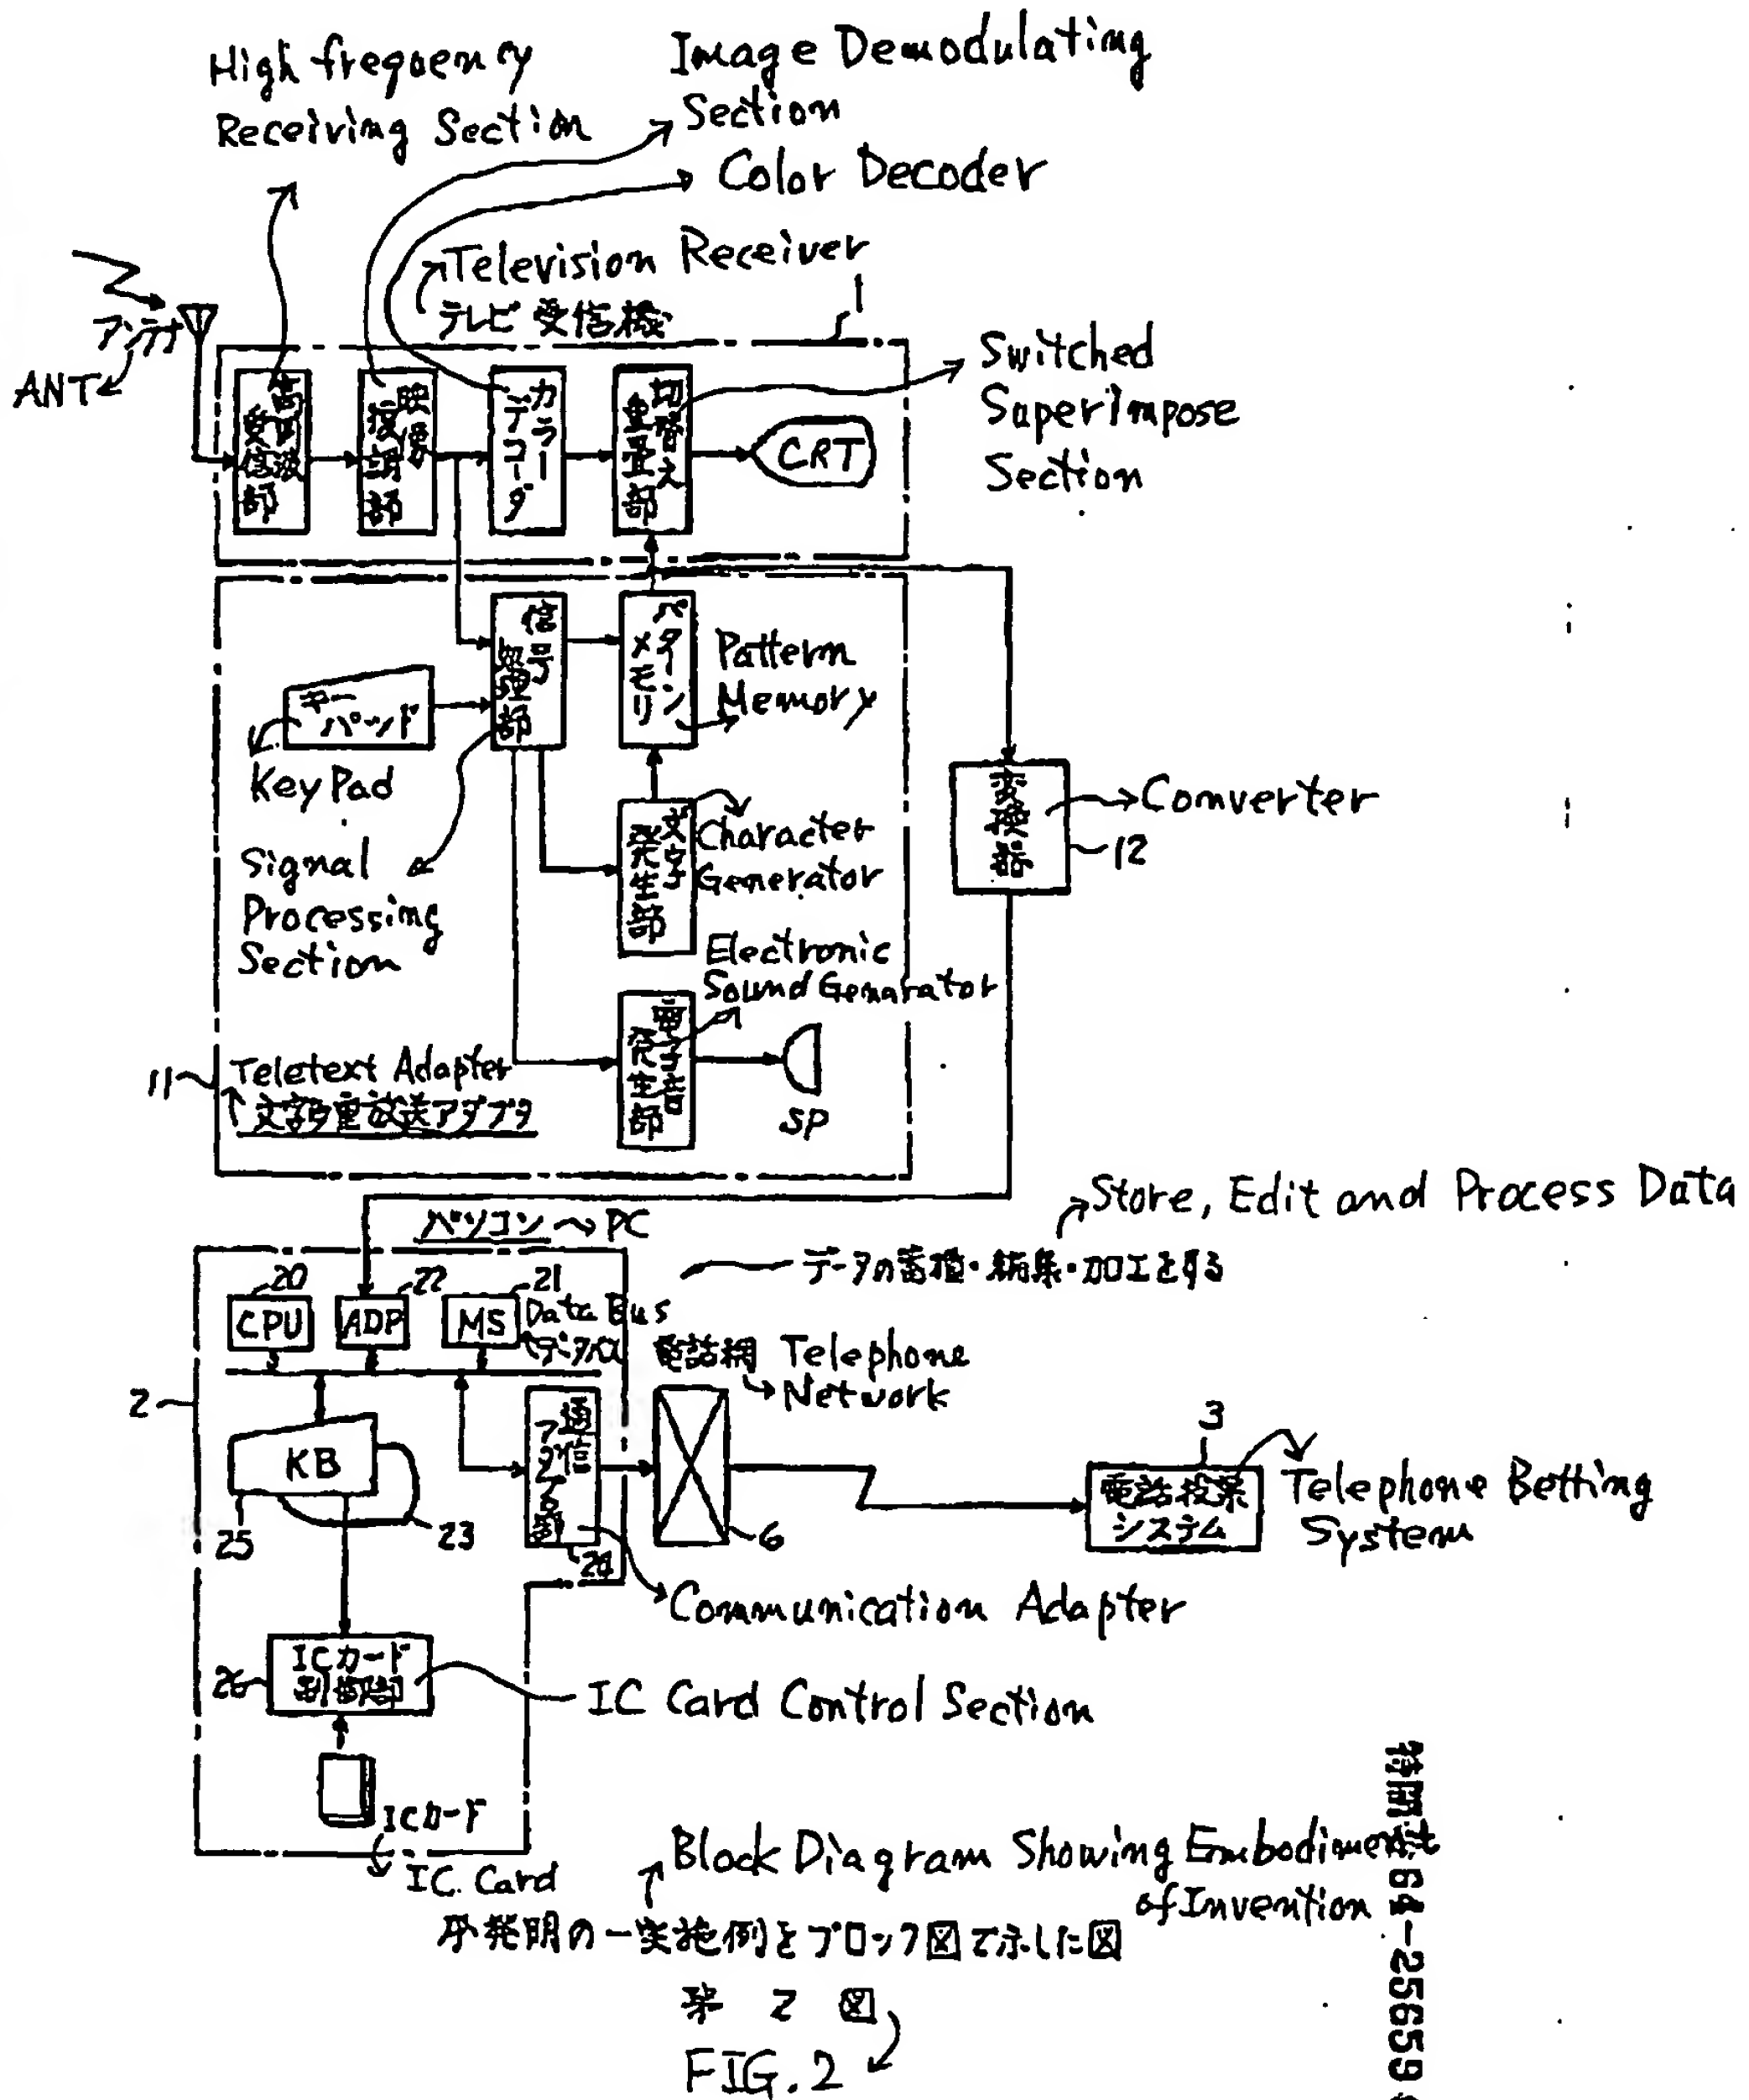 High frequency
Receiving Section
Image Demodulating
Section
Color Decoder
Television Receiver
テレビ受信機
1
アンテナ
ANT
高周波
受信部
映像
復調部
カラー
デコーダ
切替え
重畳部
CRT
Switched
Superimpose
Section
信号
処理部
パターン
メモリ
Pattern
Memory
キー
パッド
Key Pad
Signal
Processing
Section
文字
発生部
Character
Generator
変換器
Converter
12
Electronic
Sound Genarator
電子音
発生部
SP
11
Teletext Adapter
文字多重放送アダプタ
パソコン PC
Store, Edit and Process Data
データの蓄積・編集・加工をする
20
22
21
CPU
ADP
MS
Data Bus
データバス
電話網 Telephone
Network
2
KB
25
23
通信
アダプタ部
24
6
3
電話投票
システム
Telephone Betting
System
Communication Adapter
26
ICカード
制御部
IC Card Control Section
ICカード
IC. Card
Block Diagram Showing Embodiment
of Invention
本発明の一実施例をブロック図で示した図
第 2 図
FIG. 2
64-25659